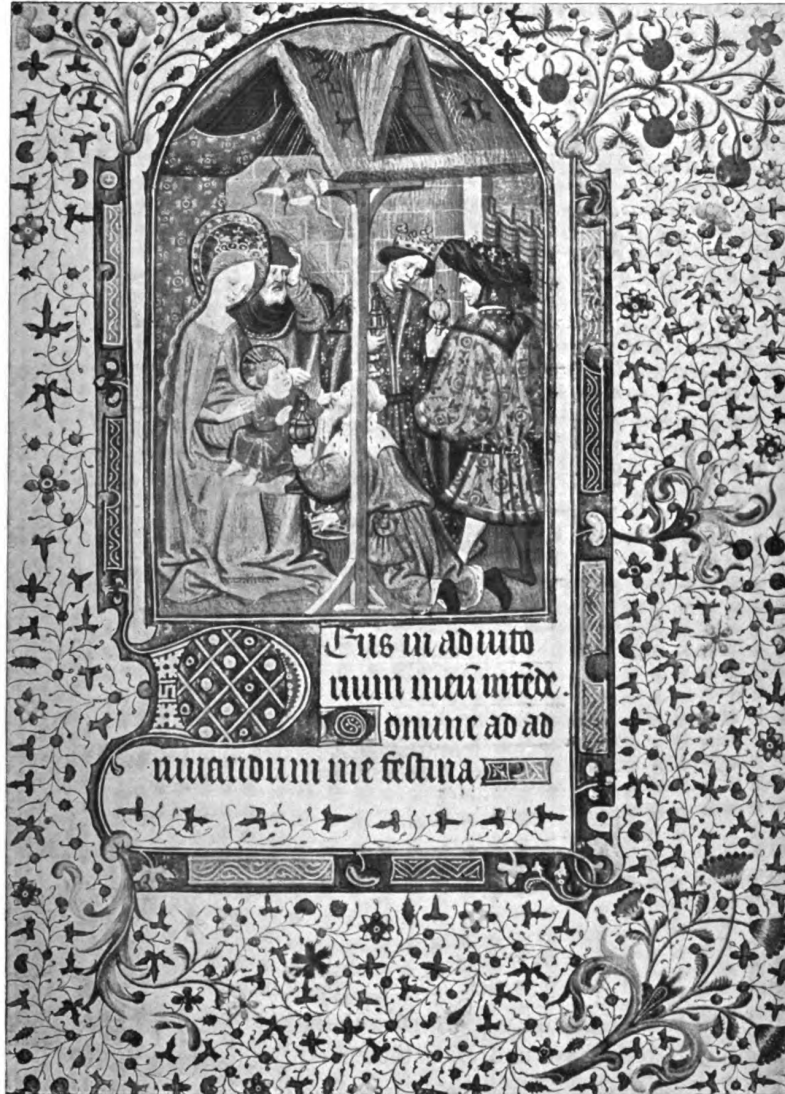 Deus in adiuto
rium meū intēde.
Domine ad ad
iuuandum me festina